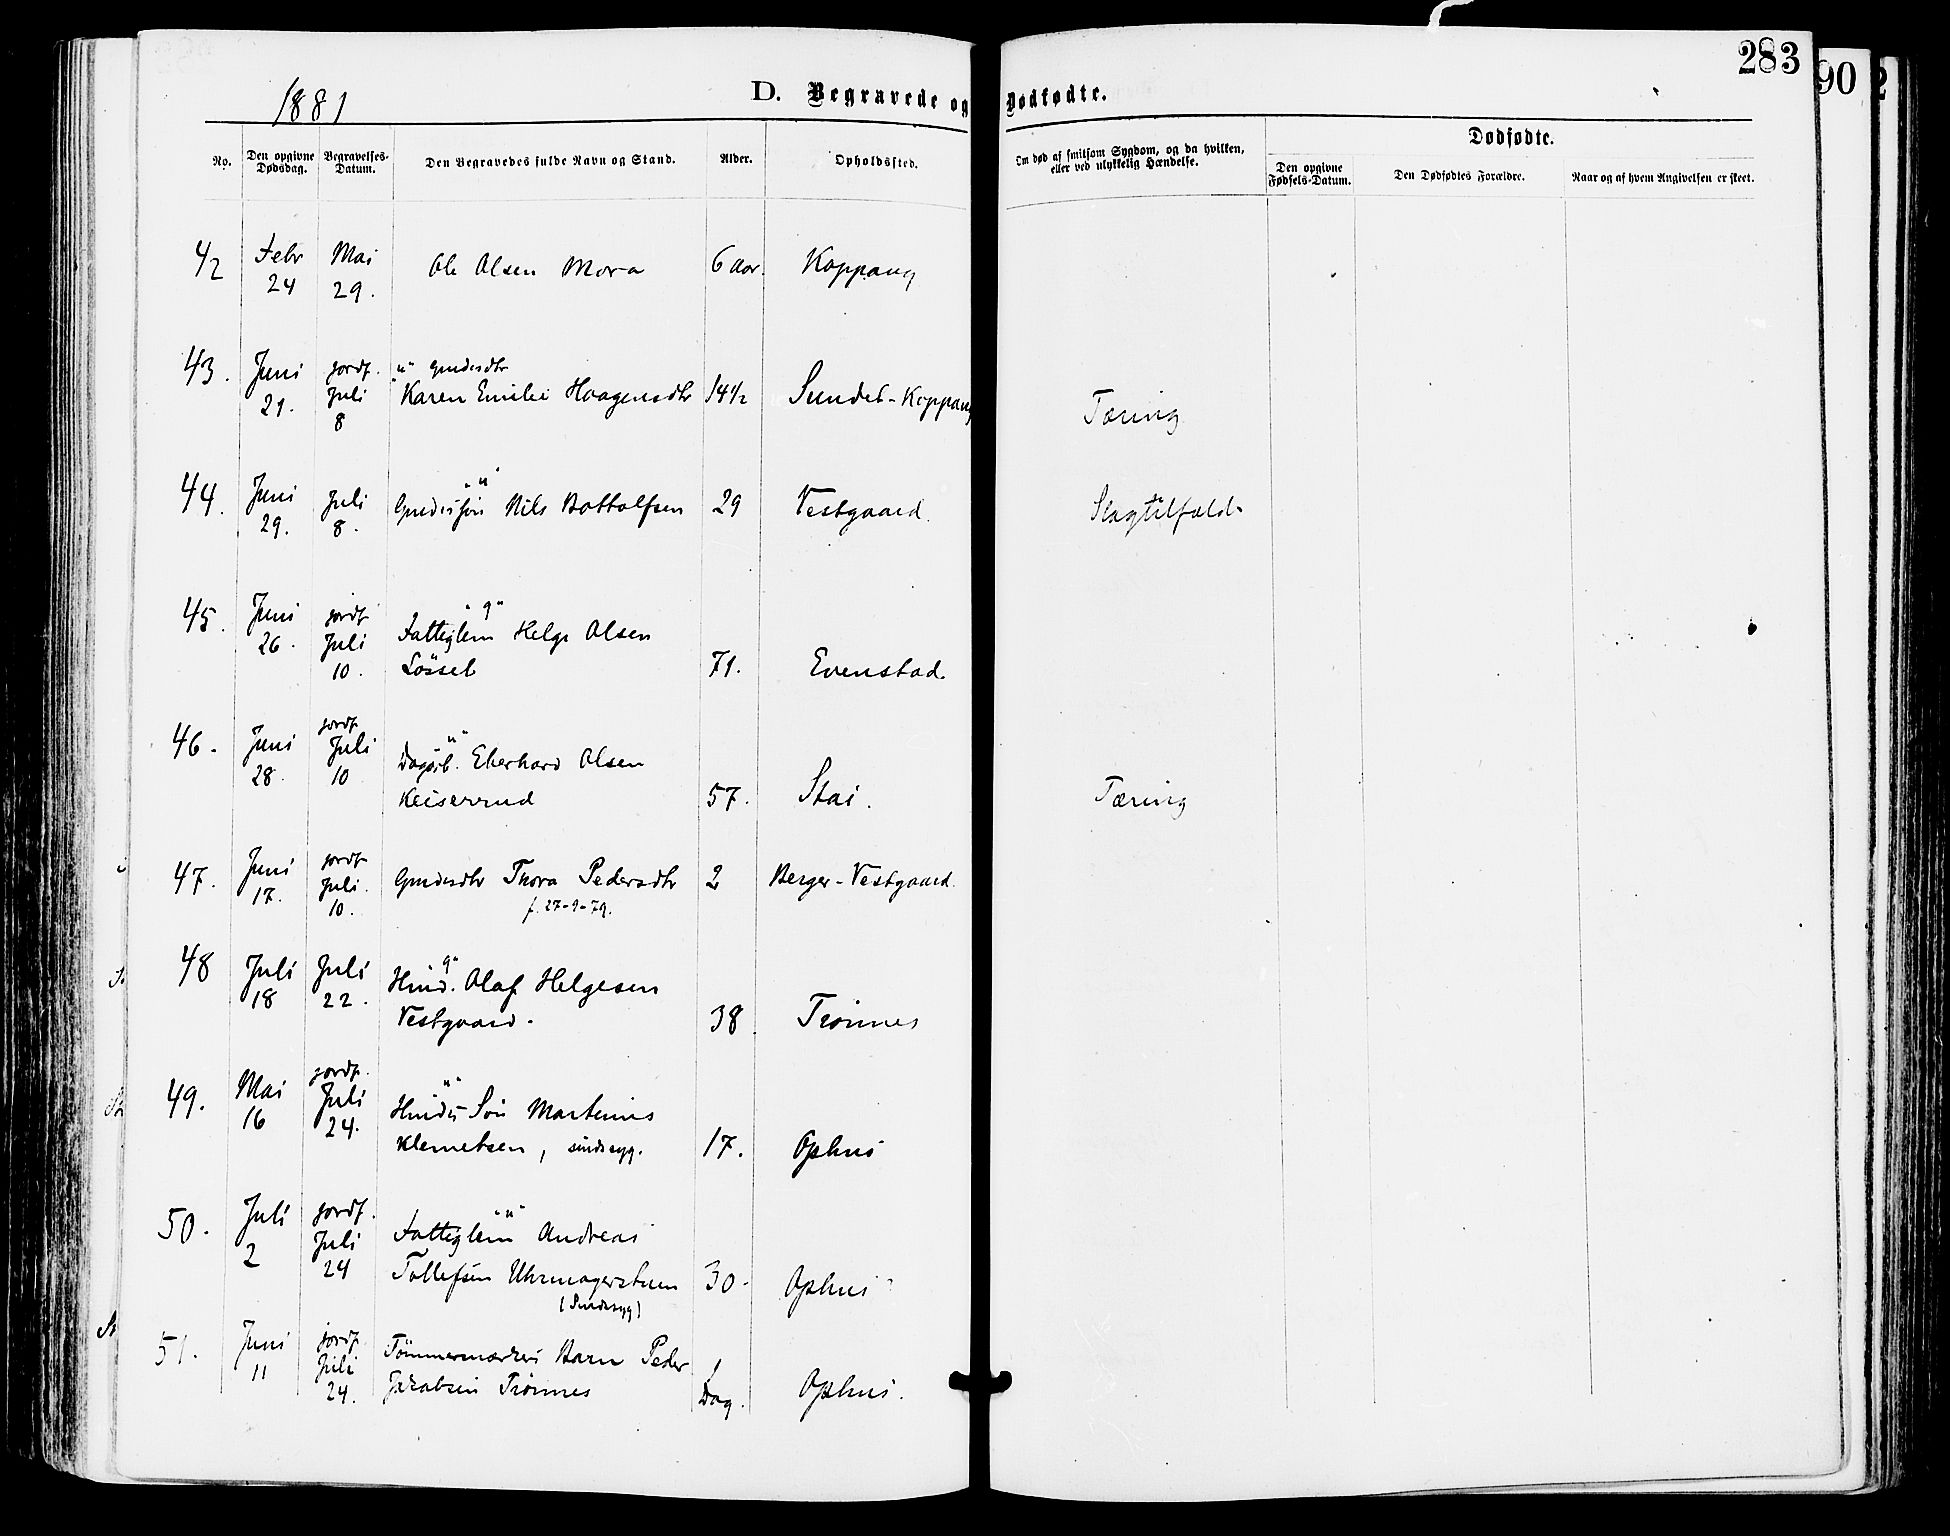 283
90
2
1881
D. Begravede og Dødfødte.
No.
Den opgivne Dødsdag.
Begravelses-Datum.
Den Begravedes fulde Navn og Stand.
Alder.
Opholdssted.
Om død af smitsom Sygdom, og da hvilken,
eller ved ulykkelig Hændelse.
Dødfødte.
Den opgivne Fødsels-Datum.
Den Dødfødtes Forældre.
Naar og af hvem Angivelsen er skeet.
42 Febr 24 Mai 29. Ole Olsen Mora 6 aar. Koppang
43. Juni 21. jordf. Juli 8 "u" Gmdsdtr
Karen Emilie Haagensdtr 14½ Sundet-Koppang Tæring
44. Juni 29. Juli 8. "u"
Gmdssøn Nils Bottolfsen 29 Vestgaard. Slagtilfæld
45. Juni 26. jordf. Juli 10. "g"
Fattiglem Helge Olsen
Løsset 71. Evenstad.
46. Juni 28. jordf. Juli 10 "u"
Dagarb. Eberhard Olsen
Keiserrud 57. Stai. Tæring
47. Juni 17. jordf. Juli. 10. Gmdsdtr Thora Pedersdtr 2 Berger-Vestgaard.
f. 27-9-79.
48 Juli 18 Juli 22. "g"
Hmd. Olaf Helgesen
Vestgaard. 38. Trønnes
49. Mai 16 jordf. Juli 24. "u"
Hmds Søn Martinus
Klemetsen, sindssyg. 17. Ophus
50. Juli 2 jordf. Juli 24 "u"
Fattiglem Andreas
Tollefsen Uhrmagerstuen 30. Ophus
(Sindssyg)
51. Juni 11 jordf. Juli 24. Tømmermærkers Barn Peder
Jakobsen Trønnes 1 Dag. Ophus.